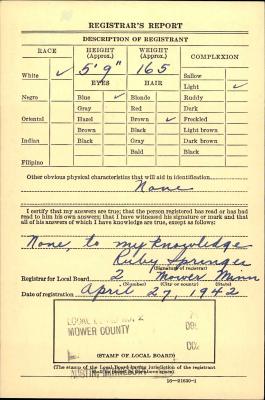 REGISTRAR'S REPORT
DESCRIPTION OF REGISTRANT
RACE HEIGHT (Approx.) WEIGHT (Approx.) COMPLEXION
White ✓ 5' 9" 165 Sallow
EYES HAIR Light ✓
Negro Blue ✓ Blonde Ruddy
Gray Red Dark
Oriental Hazel Brown ✓ Freckled
Brown Black Light brown
Indian Black Gray Dark brown
Bald Black
Filipino
Other obvious physical characteristics that will aid in identification
None
I certify that my answers are true; that the person registered has read or has had
read to him his own answers; that I have witnessed his signature or mark and that
all of his answers of which I have knowledge are true, except as follows:
None, to my knowledge
Ruby Springer
(Signature of registrar)
Registrar for Local Board 2 Mower Minn
(Number) (City or county) (State)
Date of registration April 27, 1942
LOCAL NO. 2
MOWER COUNTY
(STAMP OF LOCAL BOARD)
(The stamp of the Local Board having jurisdiction of the registrant
shall be placed in the above space)
16—21630-1